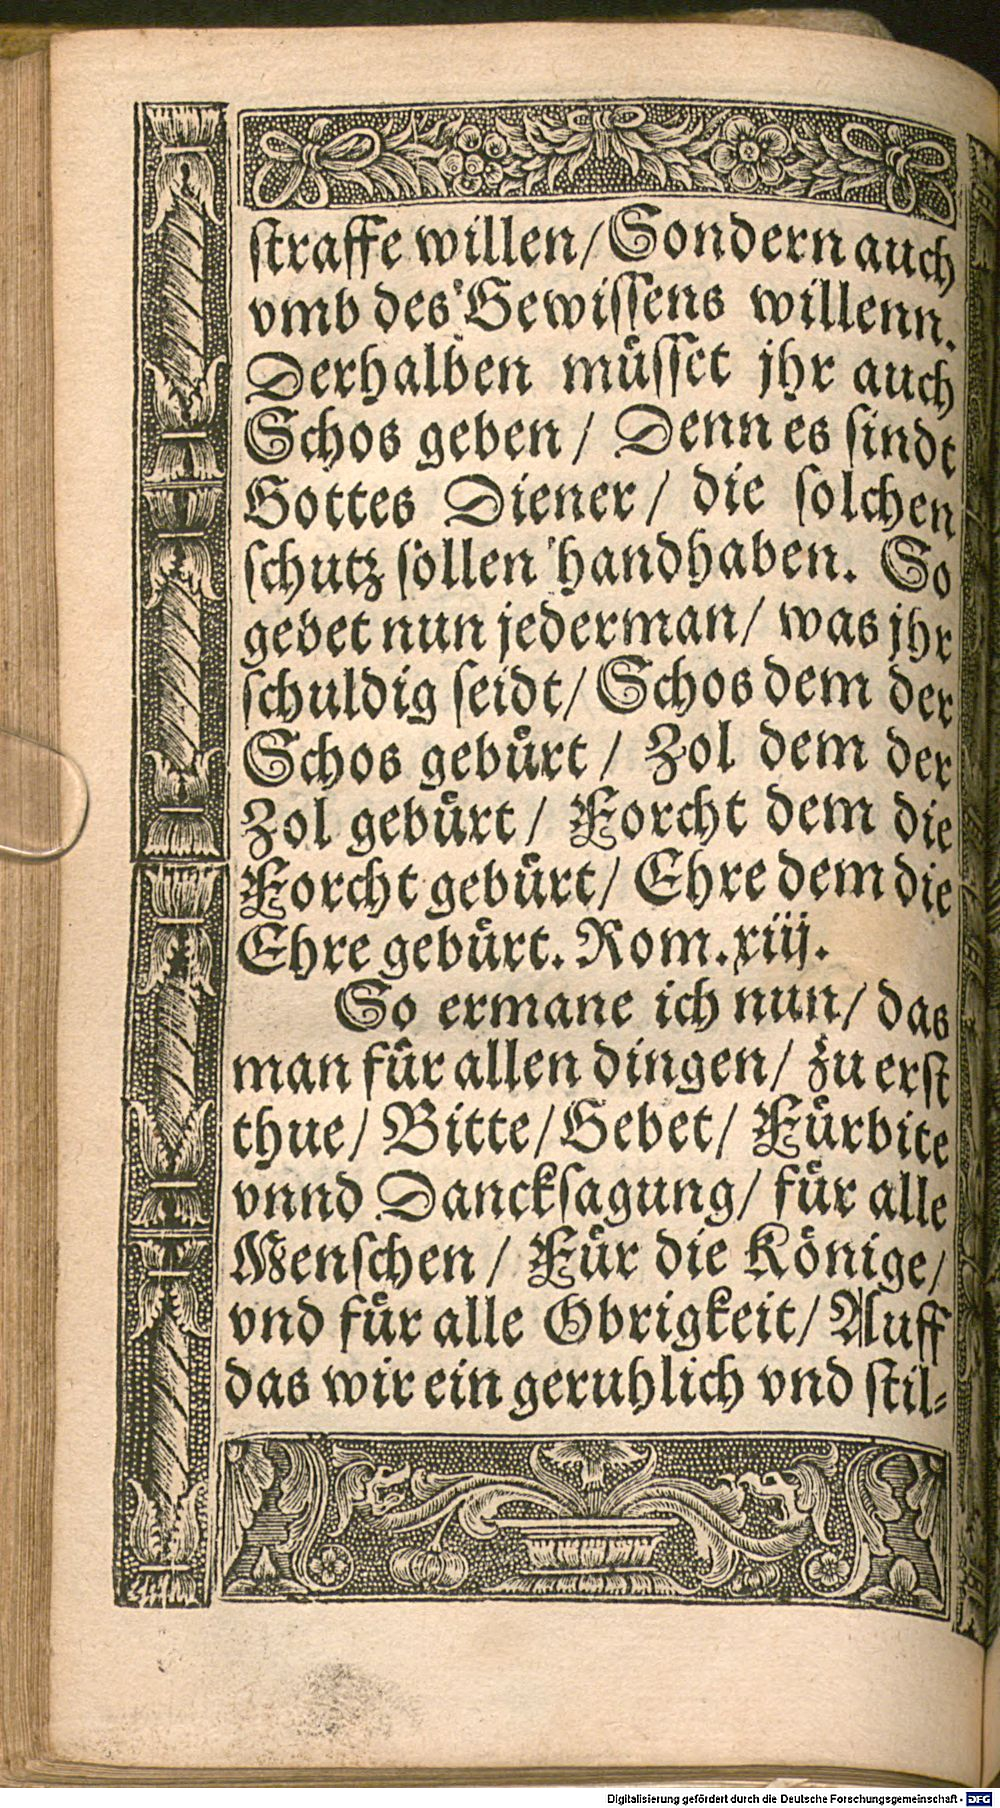 straffe willen/ Sondern auch
vmb des Gewissens willenn.
Derhalben müsset jhr auch
Schos geben / Denn es sindt
Gottes Diener / die solchen
schutz söllen handhaben. So
gebet nun jederman/ was jhr
schuldig seidt/ Schos dem der
Schos gebürt / Zol dem der
Zol gebürt / Forcht dem die
Forcht gebürt/ Ehre dem die
Ehre gebürt. Rom. xiij.
So ermane ich nun/ das
man für allen dingen/ zu erst
thue/ Bitte/ Gebet/ Fürbite
vnnd Dancksagung/ für alle
Menschen / Für die Könige/
vnd für alle Obrigkeit/ Auff
das wir ein geruhlich vnd stil-
Digitalisierung gefördert durch die Deutsche Forschungsgemeinschaft - DFG